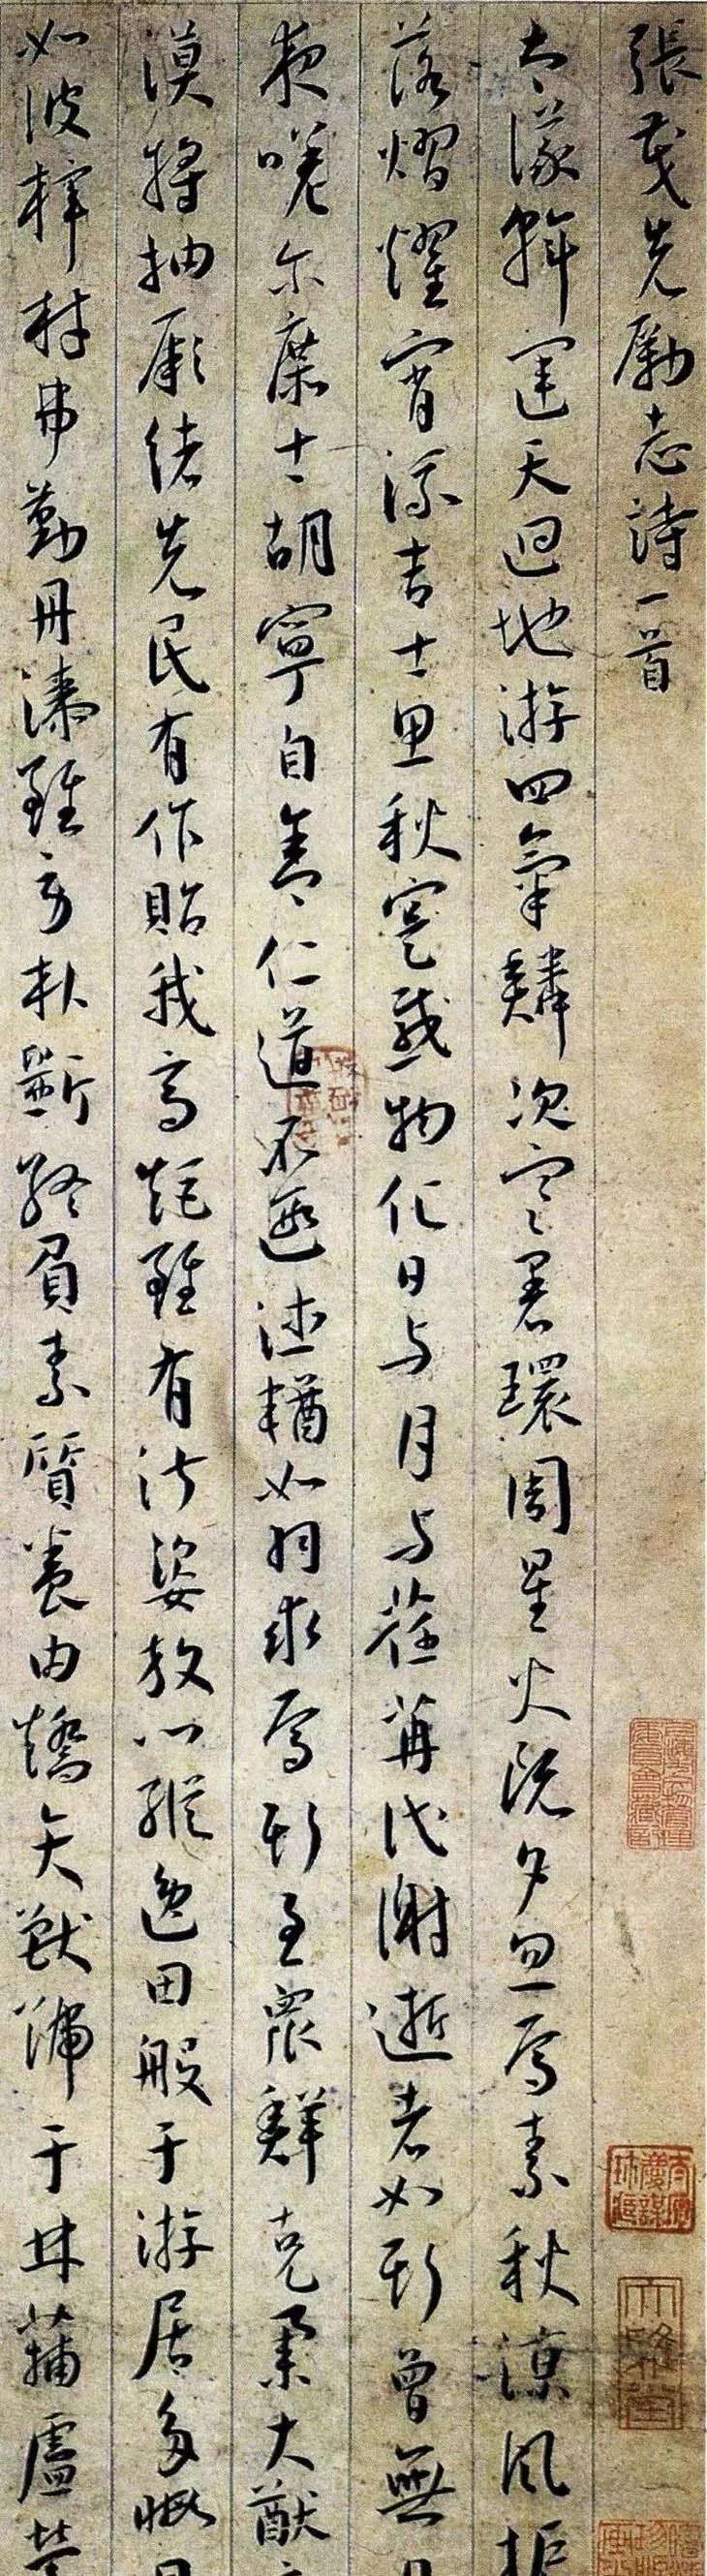 張茂先勵志詩一首
大儀斡運天迴地游四氣鱗次寒暑環周星火既夕忽焉素秋涼風振
落熠燿宵流吉士思秋寔感物化日与月与荏苒代謝逝者如斯曾無日
夜嗟尒庶士胡寧自舍仁道不遐德輶如羽求焉斯至眾鮮克舉大猷
漠將抽厥緒先民有作貽我高矩雖有淑姿放心縱逸田般于游居多暇日
如彼梓材弗勤丹漆雖勞朴斲終負素質養由矯矢獸號于林蒲盧縈